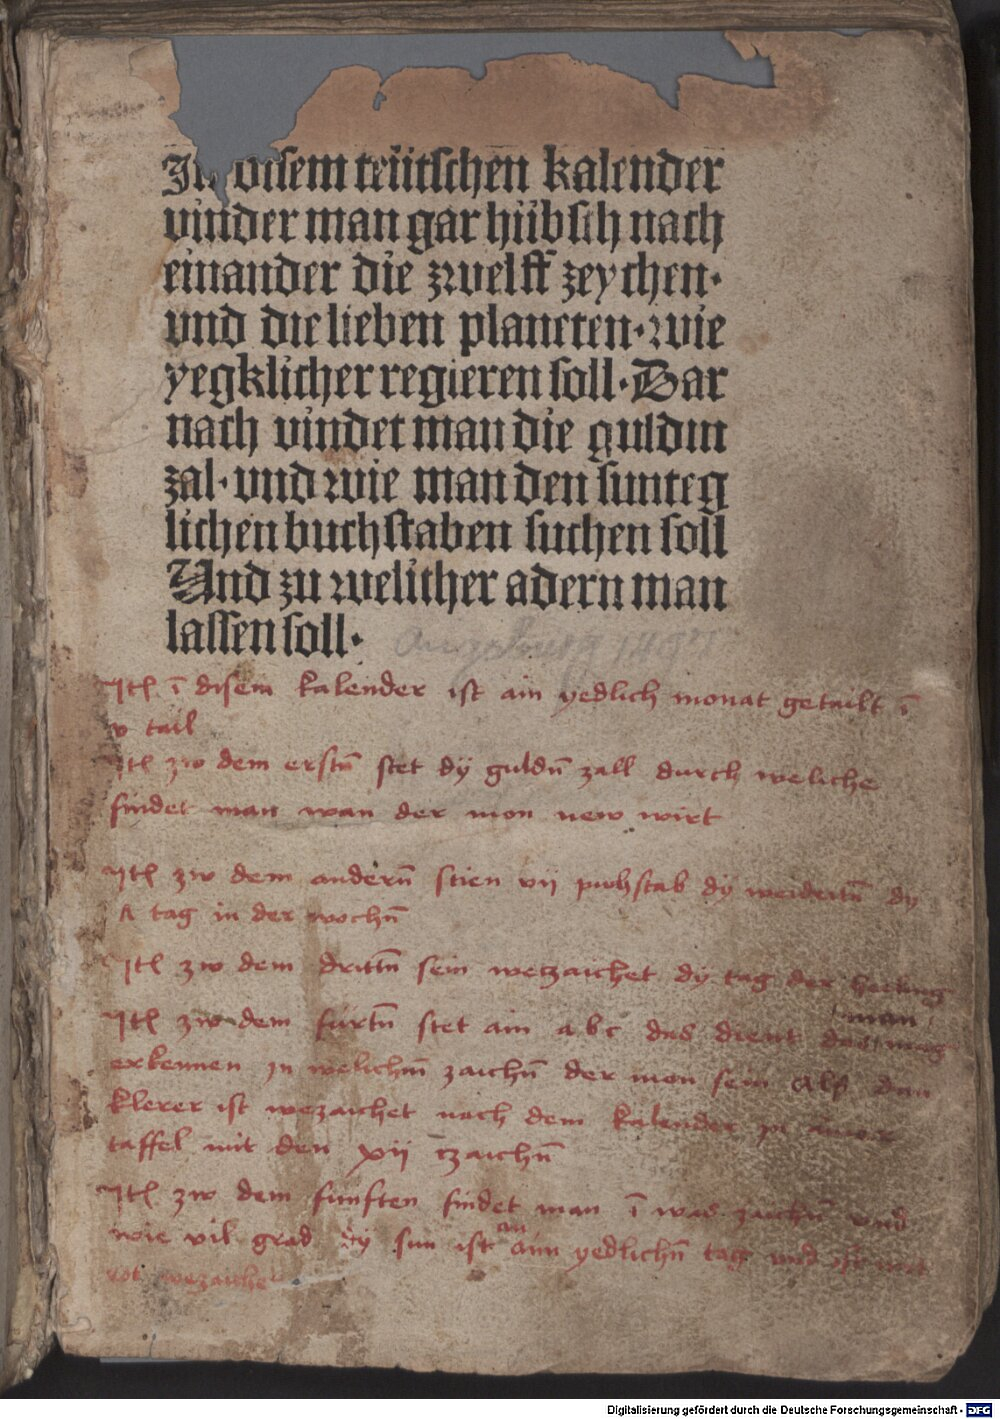 In disem teütschen kalender
vindet man gar hübsch nach
einander die zwelff zeychen·
vnd die lieben planeten· wie
yegklicher regieren soll· Dar
nach vindet man die guldin
zal· vnd wie man den sunteg
lichen buchstaben suchen soll
Und zu welicher adern man
lassen soll·
Augsburg 149
Itē ī disem kalender ist ain yedlich monat getailt ī
v tail
Itē zw dem erstn̄ stet dÿ guldn̄ zall durch weliche
findet man wan der mon new wirt
Itē zw dem andern̄ stien vii puhstab dÿ dy
tag in der wochn̄
Itē zw dem drittn̄ sein wetzaichet dÿ tag der
man
Itē zw dem fürtn̄ stet ain a b c das dient das mag
erkennen in welichm̄ zaichn̄ der mon sein Als dan
klerer ist wezaichet nach dem kalender in
taffel mit den xii tzaichn̄
Itē zw dem funften findet man ī was zaichn̄ vnd
an
wie vil grad dÿ sun ist ainn yedlichn̄ tag vnd ist mit
rot wezaiche
Digitalisierung gefördert durch die Deutsche Forschungsgemeinschaft - DFG